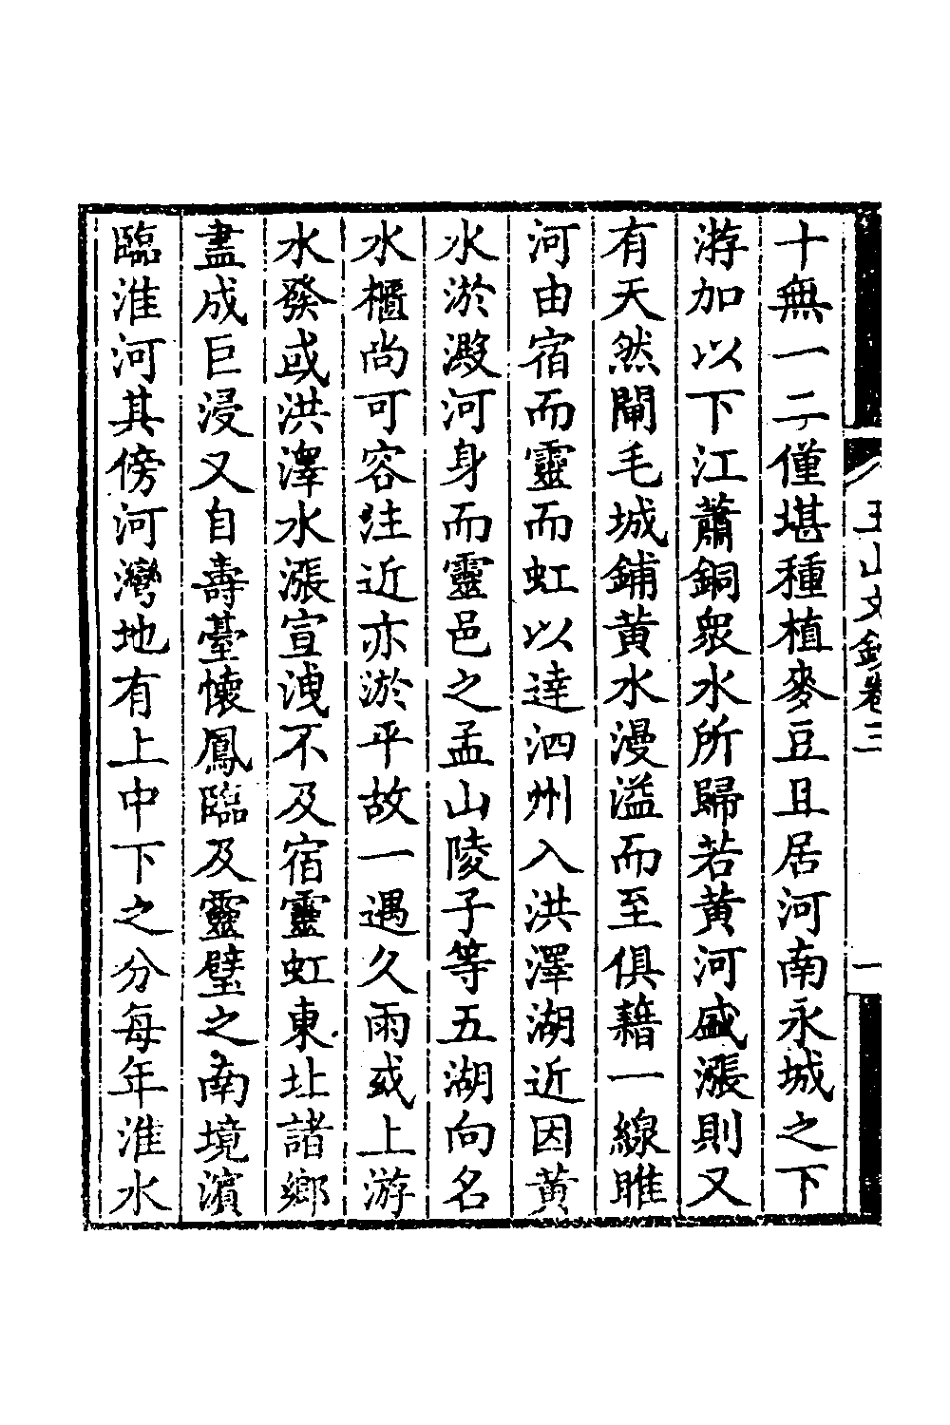 玉山文鈔卷三
一
十無一二僅堪種植麥豆且居河南永城之下
游加以下江蕭銅衆水所歸若黃河盛漲則又
有天然閘毛城鋪黃水漫溢而至俱藉一線睢
河由宿而靈而虹以達泗州入洪澤湖近因黃
水淤澱河身而靈邑之孟山陵子等五湖向名
水櫃尚可容注近亦淤平故一遇久雨或上游
水發或洪澤水漲宣洩不及宿靈虹東北諸鄉
盡成巨浸又自壽臺懷鳳臨及靈璧之南境濱
臨淮河其傍河灣地有上中下之分每年淮水